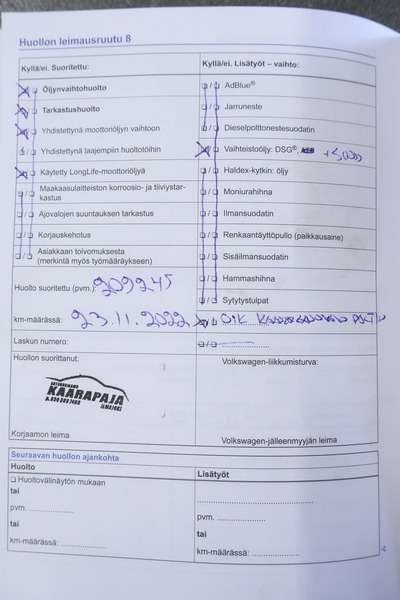 Huollon leimausruutu 8
Kyllä/ei. Suoritettu:
Öljynvaihtohuolto
Tarkastushuolto
Yhdistettynä moottoriöljyn vaihtoon
Yhdistettynä laajempiin huoltotöihin
Käytetty LongLife-moottoriöljyä
Maakaasulaitteiston korroosio- ja tiiviystar-
kastus
Ajovalojen suuntauksen tarkastus
Korjauskehotus
Asiakkaan toivomuksesta
(merkintä myös työmääräykseen)
Huolto suoritettu (pvm.): 209245
km-määrässä: 23.11.2022
Laskun numero:
Huollon suorittanut:
KAARAPAJA
ILMAJOKI
Korjaamon leima
Kyllä/ei. Lisätyöt – vaihto:
AdBlue®
Jarruneste
Dieselpolttonestesuodatin
Vaihteistoöljy: DSG®,
Haldex-kytkin: öljy
Moniurahihna
Ilmansuodatin
Renkaantäyttöpullo (paikkausaine)
Sisäilmansuodatin
Hammashihna
Sytytystulpat
Volkswagen-liikkumisturva:
Volkswagen-jälleenmyyjän leima
Seuraavan huollon ajankohta
Huolto
Huoltovälinäytön mukaan
tai
pvm.
tai
km-määrässä:
Lisätyöt
pvm.
tai
km-määrässä: